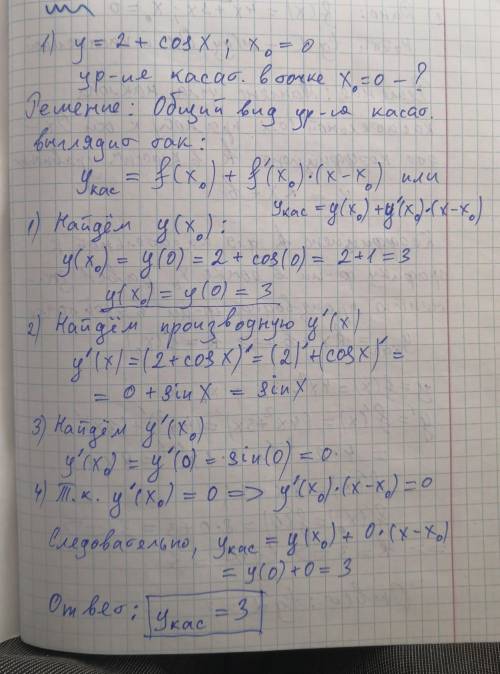 1) y = 2 + cos X ; x₀ = 0
ур-ие касат. в точке x₀ = 0 - ?
Решение: Общий вид ур-ия касат.
выглядит так:
y кас = f(x₀) + f'(x₀)·(x-x₀) или
y кас = y(x₀) + y'(x₀)·(x-x₀)
1) Найдём y(x₀):
y(x₀) = y(0) = 2 + cos(0) = 2+1 = 3
y(x₀) = y(0) = 3
2) Найдём производную y'(x)
y'(x) = (2 + cos X)' = (2)' + (cos X)' =
= 0 + sin X = sin X
3) Найдём y'(x₀)
y'(x₀) = y'(0) = sin(0) = 0
4) Т.к. y'(x₀) = 0 => y'(x₀)·(x-x₀) = 0
Следовательно, y кас = y(x₀) + 0·(x-x₀)
= y(0) + 0 = 3
Ответ: y кас = 3